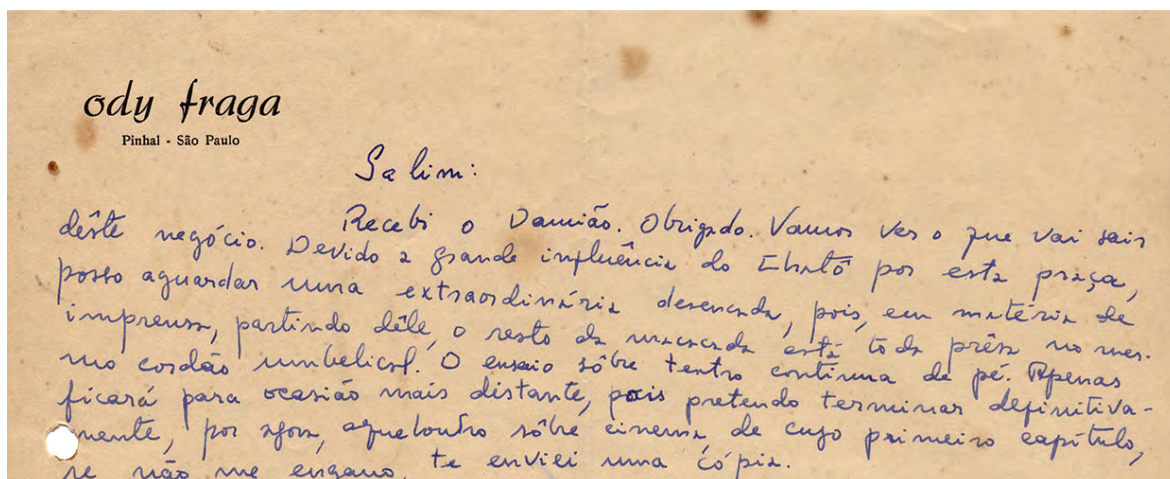 ody fraga
Pinhal - São Paulo
Salim:
Recebi o Damião. Obrigado. Vamos ver o que vai sair
dêste negócio. Devido a grande influência do por esta praça,
posso aguardar uma extraordinária desencada, pois, em matéria de
imprensa, partindo dêle, o resto da macacada está toda prêsa no mes-
mo cordão umbelical. O ensaio sôbre teatro continua de pé. Apenas
ficará para ocasião mais distante, pois pretendo terminar definitiva-
mente, por agora, aqueloutro sôbre cinema, de cujo primeiro capítulo,
se não me engano, te enviei uma cópia.